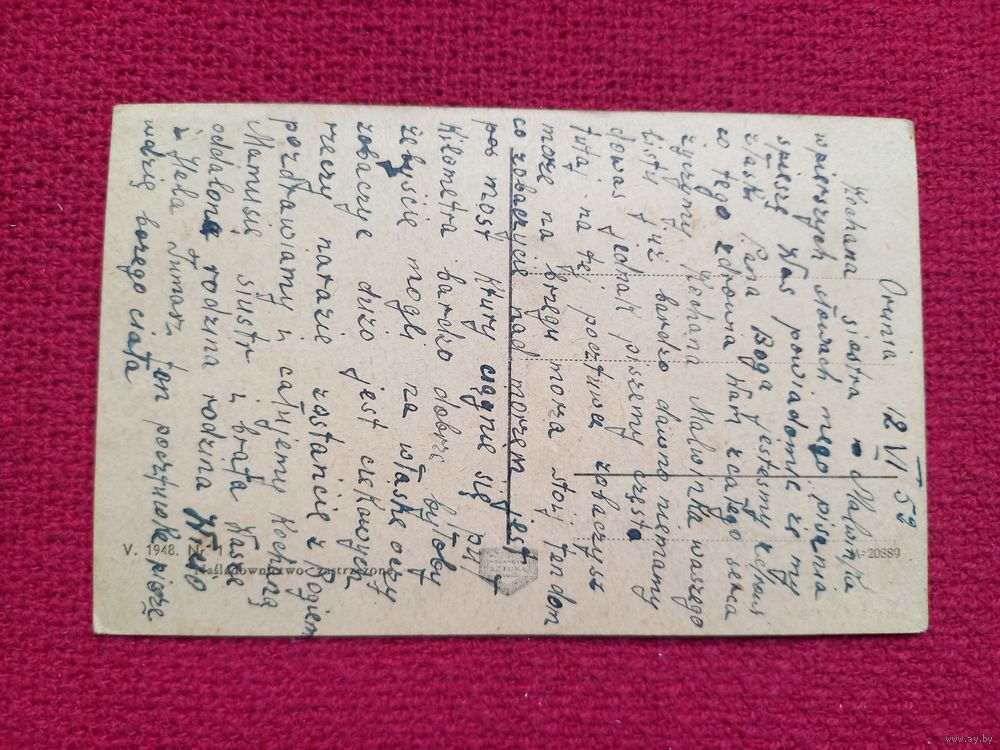 Orunia 12 VI 52
Kochana siostra Malwinia
w pierszych słowach mego pisania
spieszę Was powiadomić że my
złaski Pana Boga jestesmy zdrowi
co tego zdrowia Wam zcałego serca
życzymy Kochana Malwinka waszego
listy już bardzo dawno niemamy
dowas jednak piszemy często
tutaj na tej pocztuwce zobaczysz
może na brzegu morza stoij ten dom
co zobaczycie nad morzem jest
pos most ktury ciągnie się pu
Kilometra barczo dobrze byłoby
żebyście mogli na własne oczy
zobaczyc dużo jest ciekawych
rzeczy narazie zostańcie z Bogiem
pozdrawiamy i całujemy Kochaną
Mamusię siustr i brata Wasze
oddalona rodzina
i Hela Tumasz ten pocztuwkę piszę
widzię bożego ciała
V. 1948. Nr. 1
Naśladownictwo zastrzeżone
SZTUKA
A-20889
www.ay.by